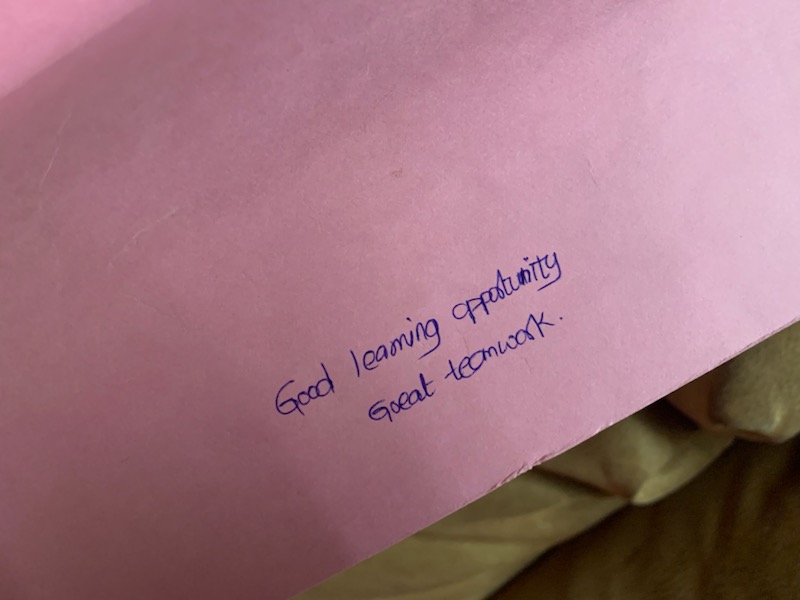 Good learning opportunity
Great teamwork.